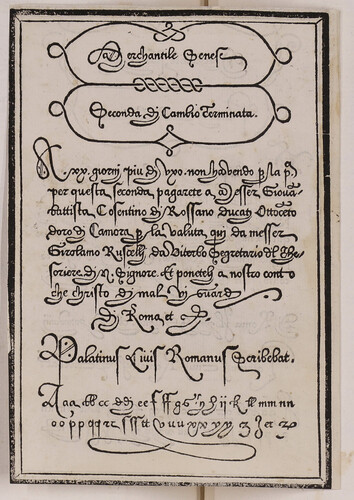 Merchantile Senese
Seconda di Cambio Terminata.
A xx. giorni piu di vxo. non havendo per la pª
per questa seconda pagarete a Messer Giovā
battista Cosentino di Rossano ducati Ottoceto
doro di Camera per la valuta qui da messer
Girolamo Ruscelli da Viterbo Segretario del the
soriere di N. Signore. Et ponetela a nostro conto
che christo di mal Vi guardi
Di Roma et
Palatinus Civis Romanus Scribebat.
A aa. bb cc dd ee ff ff gg hh ii k ll mm nn
oo pp qq rr sss tt v uu xx yy z